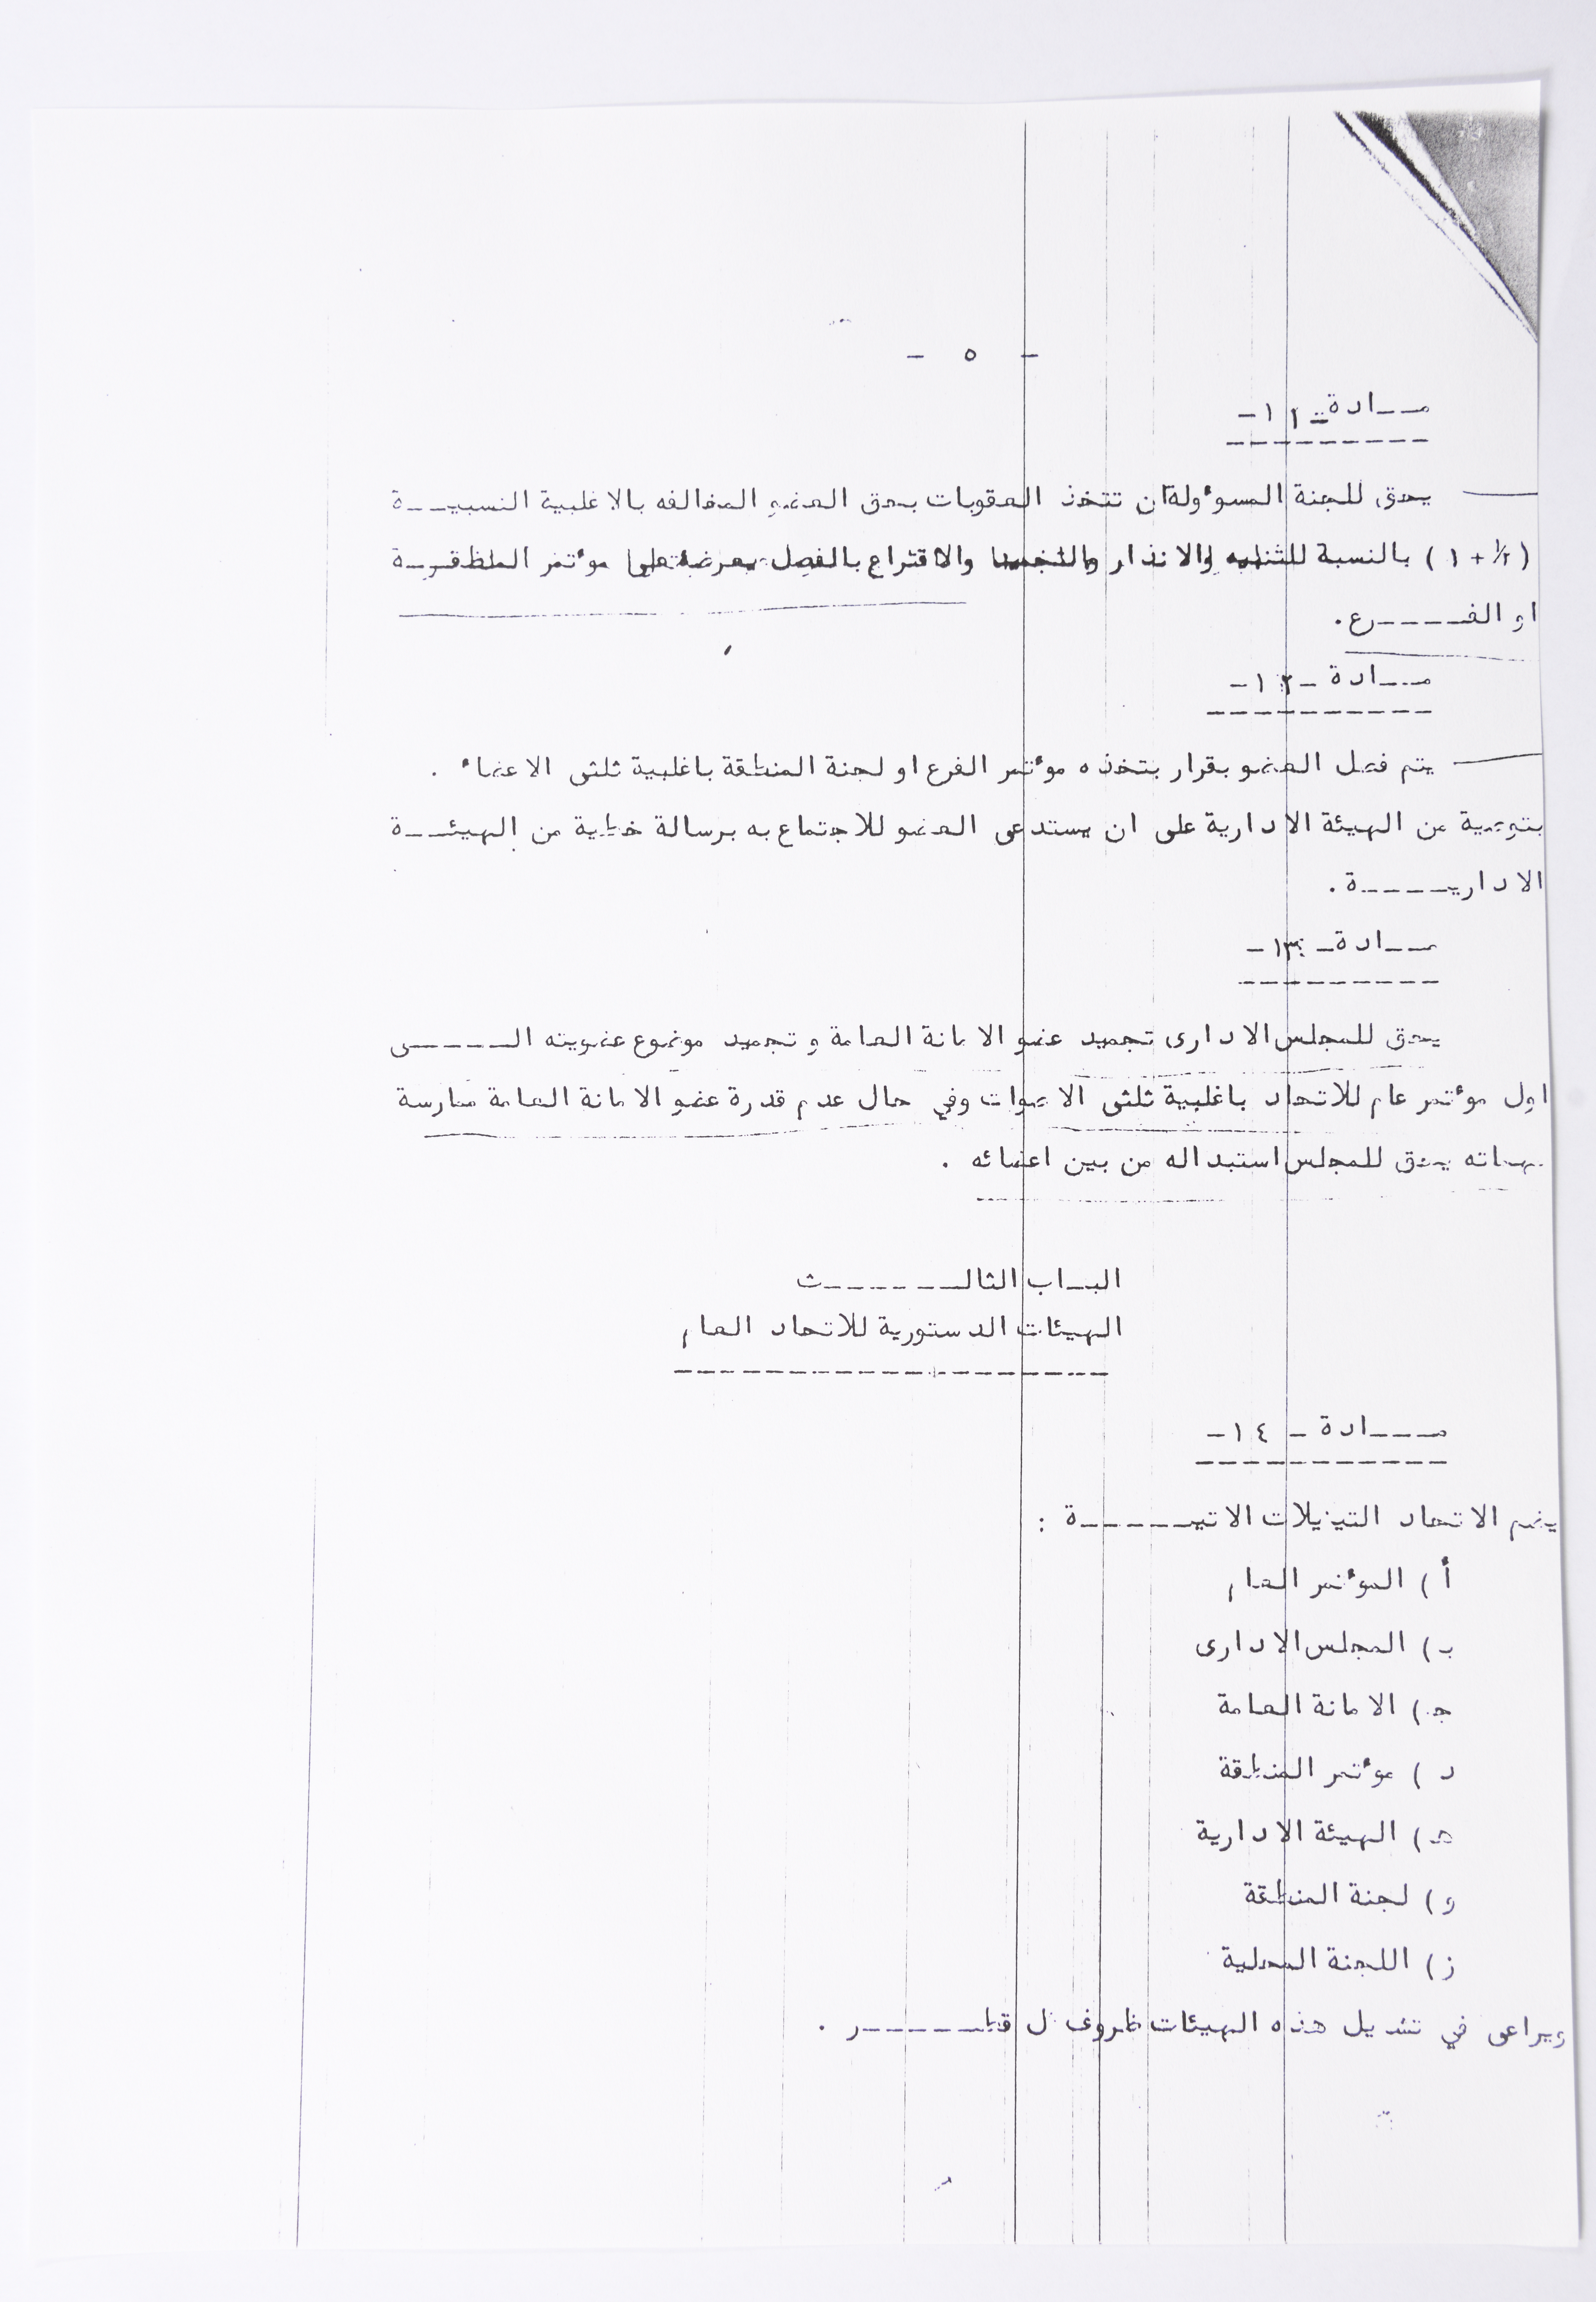 - ٥ -
مـــادة -١١-
يحق للجنة المسوءولة ان تتخذ العقوبات بحق العضو المخالفه بالاغلبية النسبيـــة
( ١/٢ + ١ ) بالنسبة للتنبيه والانذار والتجميد والاقتراع بالفصل يعرض على موءتمر المنطقـــة
او الفـــــرع .
مـــادة -١٢-
يتم فصل العضو بقرار يتخذه موءتمر الفرع او لجنة المنطقة باغلبية ثلثى الاعضاء .
بتوصية من الهيئة الادارية على ان يستدعى العضو للاجتماع به برسالة خطية من الهيئـــة
الاداريـــــة .
مـــادة -١٣-
يحق للمجلس الادارى تجميد عضو الامانة العامة و تجميد موضوع عضويته الـــــى
اول موءتمر عام للاتحاد باغلبية ثلثى الاصوات وفي حال عدم قدرة عضو الامانة العامة ممارسة
مهماته يحق للمجلس استبداله من بين اعضائه .
البـاب الثالـــــــث
الهيئات الدستورية للاتحاد العام
مــــادة - ١٤-
يضم الاتحاد التيزيلات الاتيـــــــة :
أ ) الموءتمر العام
ب ) المجلس الادارى
ج ) الامانة العامة
د ) موءتمر المنطقة
هـ ) الهيئة الادارية
و ) لجنة المنطقة
ز ) اللجنة المحلية
ويراعى في تشكيل هذه الهيئات ظروف كل قطـــــــر .